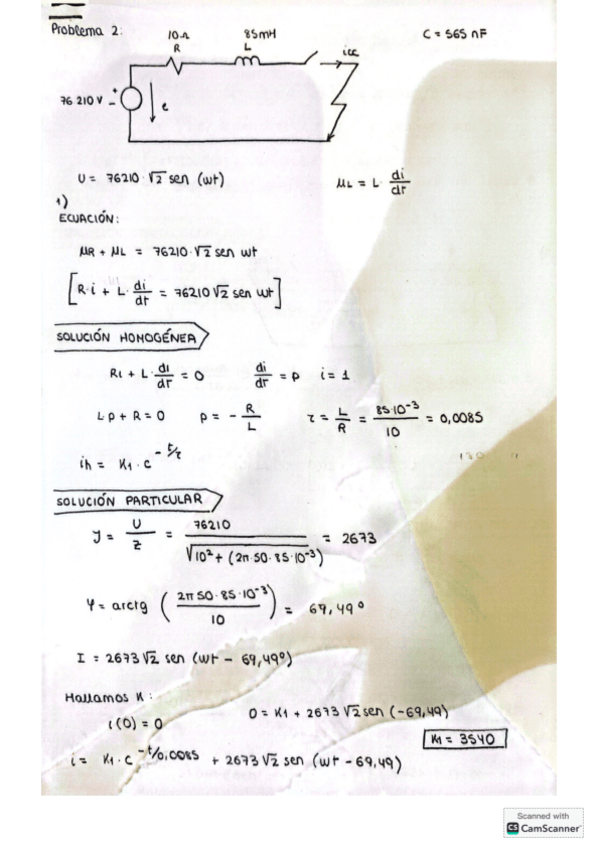 Problema 2:
10Ω
R
85mH
L
C = 565 nF
icc
76 210 V
+
-
e
U = 76210·√2 sen (wt)
μL = L· di/dt
1)
ECUACIÓN:
μR + μL = 76210·√2 sen wt
[R·i + L· di/dt = 76210√2 sen wt]
SOLUCIÓN HOMOGÉNEA
Ri + L· di/dt = 0 di/dt = p i = 1
L·p + R = 0 p = - R/L τ = L/R = 85·10⁻³/10 = 0,0085
ih = K1 · e^(-t/τ)
SOLUCIÓN PARTICULAR
I = U/Z = 76210/√(10² + (2π·50·85·10⁻³)) = 2673
φ = arctg (2π 50·85·10⁻³/10) = 69,49º
I = 2673√2 sen (wt - 69,49º)
Hallamos K:
i(0) = 0
0 = K1 + 2673 √2 sen (-69,49)
K1 = 3540
i = K1 · e^(-t/0,0085) + 2673 √2 sen (wt - 69,49)
Scanned with
CS CamScanner